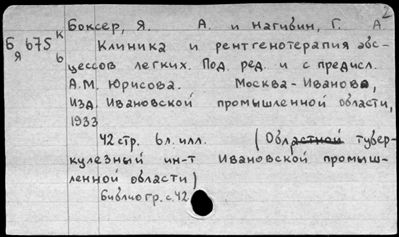 2
Боксер, Я. А. и Нагивин, Г. А.
Б 675 к
Я ь
Клиника и рентгенотерапия абс-
цессов легких. Под. ред. и с предисл.
А.М. Юрисова. Москва-Иваново,
Изд. Ивановской промышленной области,
1933
42 стр. 6 л. илл. (Областной тубер-
кулезный ин-т Ивановской промыш-
ленной области)
Библиогр. с. 42